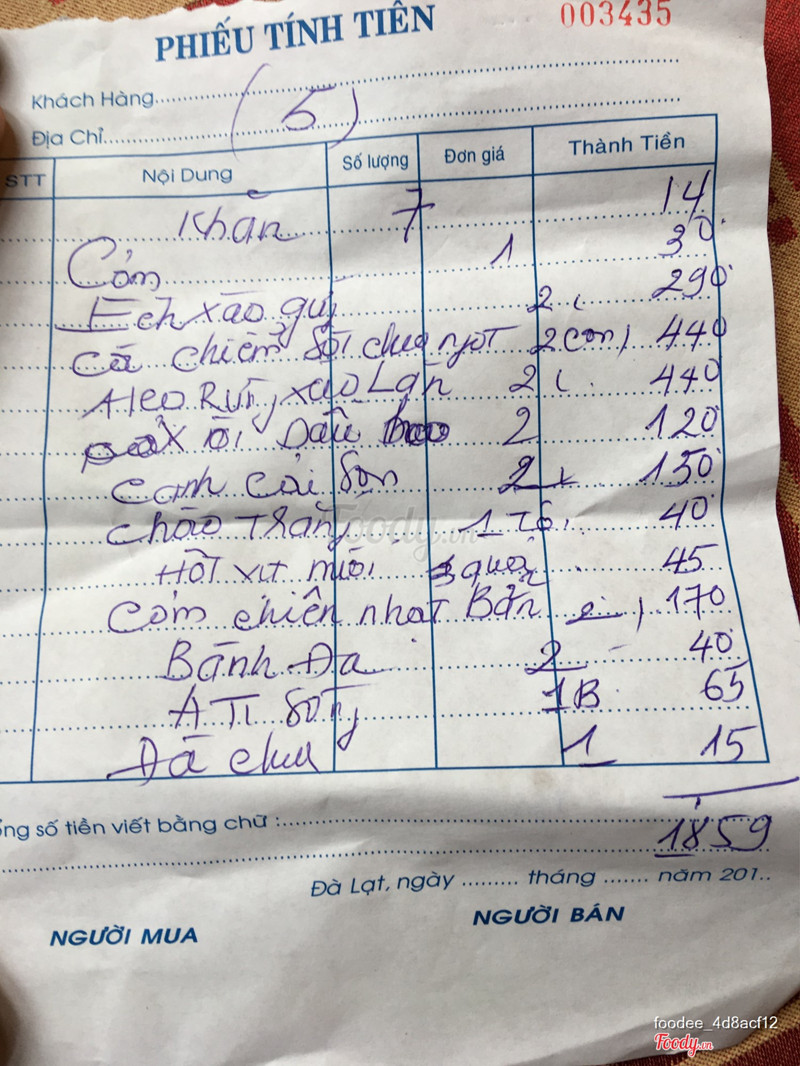 PHIẾU TÍNH TIỀN 003435
Khách Hàng
Địa Chỉ (5)
STT Nội Dung Số lượng Đơn giá Thành Tiền
Khăn 7 14
Cơm 1 30
Ếch xào 2 290
Cá chiêm chua ngọt 2 con 440
Heo Rừng xào Lăn 2 440
Dầu hào 2 120
canh cải 2 150
cháo Trắng 1 Tô 40
Hột vịt muối 3 quả 45
Cơm chiên nhật Bản 2 170
Bánh Đa 2 40
ATI 1B 65
Đá chu 1 15
ổng số tiền viết bằng chữ :
1859
Foody.vn
Đà Lạt, ngày ......... tháng ....... năm 201..
NGƯỜI MUA NGƯỜI BÁN
foodee_4d8acf12
Foody.vn